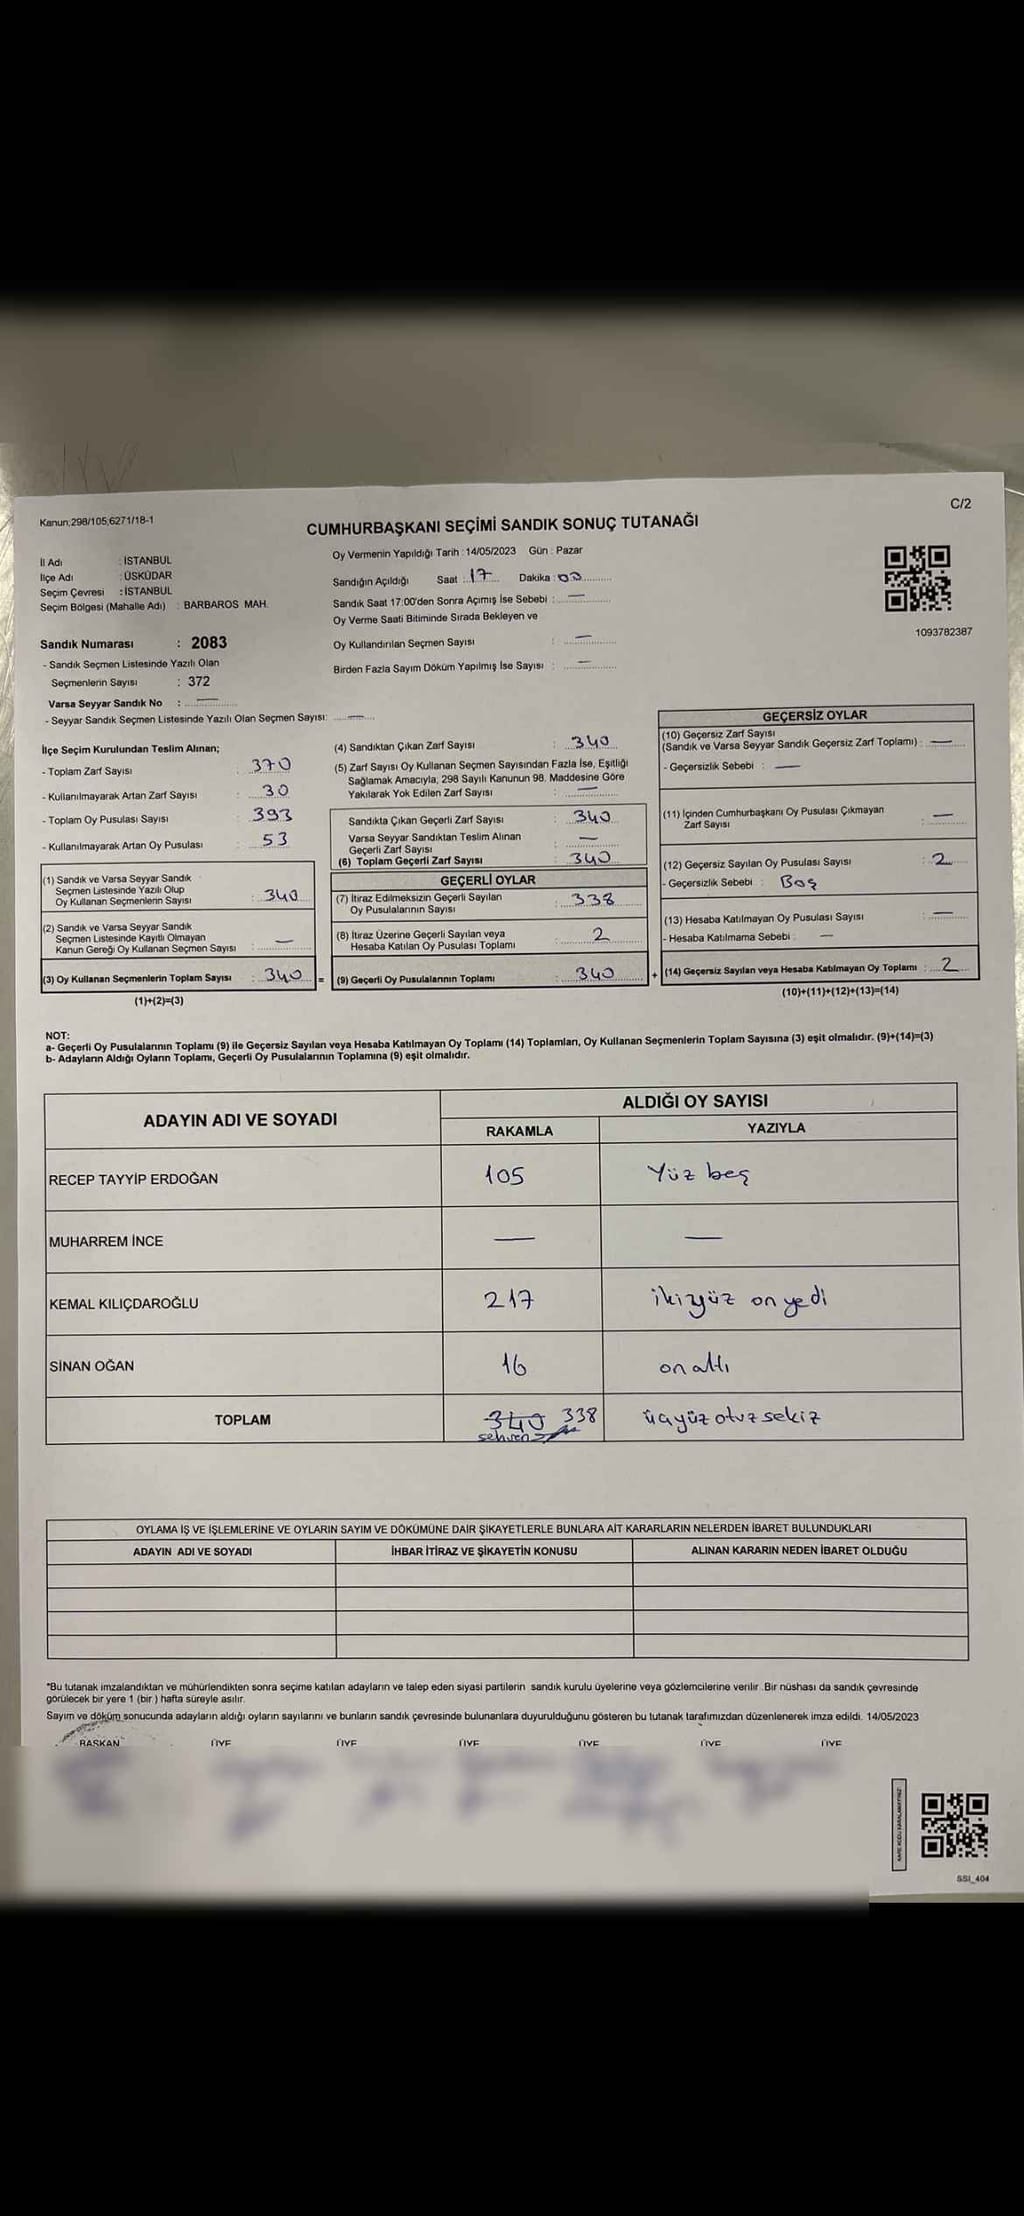 Kanun;298/105;6271/18-1
C/2
CUMHURBAŞKANI SEÇİMİ SANDIK SONUÇ TUTANAĞI
İl Adı : İSTANBUL
İlçe Adı : ÜSKÜDAR
Seçim Çevresi : İSTANBUL
Seçim Bölgesi (Mahalle Adı) : BARBAROS MAH.
Oy Vermenin Yapıldığı Tarih : 14/05/2023 Gün : Pazar
Sandığın Açıldığı Saat : 17 Dakika : 00
Sandık Saat 17:00'den Sonra Açımış İse Sebebi : —
Oy Verme Saati Bitiminde Sırada Bekleyen ve
Oy Kullandırılan Seçmen Sayısı : —
Birden Fazla Sayım Döküm Yapılmış İse Sayısı : —
1093782387
Sandık Numarası : 2083
- Sandık Seçmen Listesinde Yazılı Olan
Seçmenlerin Sayısı : 372
Varsa Seyyar Sandık No : —
- Seyyar Sandık Seçmen Listesinde Yazılı Olan Seçmen Sayısı: —
İlçe Seçim Kurulundan Teslim Alınan;
- Toplam Zarf Sayısı : 370
- Kullanılmayarak Artan Zarf Sayısı : 30
- Toplam Oy Pusulası Sayısı : 393
- Kullanılmayarak Artan Oy Pusulası : 53
(1) Sandık ve Varsa Seyyar Sandık
Seçmen Listesinde Yazılı Olup
Oy Kullanan Seçmenlerin Sayısı : 340
(2) Sandık ve Varsa Seyyar Sandık
Seçmen Listesinde Kayıtlı Olmayan
Kanun Gereği Oy Kullanan Seçmen Sayısı : —
(3) Oy Kullanan Seçmenlerin Toplam Sayısı : 340 =
(1)+(2)=(3)
(4) Sandıktan Çıkan Zarf Sayısı : 340
(5) Zarf Sayısı Oy Kullanan Seçmen Sayısından Fazla İse, Eşitliği
Sağlamak Amacıyla, 298 Sayılı Kanunun 98. Maddesine Göre
Yakılarak Yok Edilen Zarf Sayısı : —
Sandıkta Çıkan Geçerli Zarf Sayısı : 340
Varsa Seyyar Sandıktan Teslim Alınan
Geçerli Zarf Sayısı : —
(6) Toplam Geçerli Zarf Sayısı : 340
GEÇERLİ OYLAR
(7) İtiraz Edilmeksizin Geçerli Sayılan
Oy Pusulalarının Sayısı : 338
(8) İtiraz Üzerine Geçerli Sayılan veya
Hesaba Katılan Oy Pusulası Toplamı : 2
(9) Geçerli Oy Pusulalarının Toplamı : 340 +
GEÇERSİZ OYLAR
(10) Geçersiz Zarf Sayısı
(Sandık ve Varsa Seyyar Sandık Geçersiz Zarf Toplamı) : —
- Geçersizlik Sebebi : —
(11) İçinden Cumhurbaşkanı Oy Pusulası Çıkmayan
Zarf Sayısı : —
(12) Geçersiz Sayılan Oy Pusulası Sayısı : 2
- Geçersizlik Sebebi : Boş
(13) Hesaba Katılmayan Oy Pusulası Sayısı : —
- Hesaba Katılmama Sebebi : —
(14) Geçersiz Sayılan veya Hesaba Katılmayan Oy Toplamı : 2
(10)+(11)+(12)+(13)=(14)
NOT:
a- Geçerli Oy Pusulalarının Toplamı (9) ile Geçersiz Sayılan veya Hesaba Katılmayan Oy Toplamı (14) Toplamları, Oy Kullanan Seçmenlerin Toplam Sayısına (3) eşit olmalıdır. (9)+(14)=(3)
b- Adayların Aldığı Oyların Toplamı, Geçerli Oy Pusulalarının Toplamına (9) eşit olmalıdır.
ADAYIN ADI VE SOYADI
ALDIĞI OY SAYISI
RAKAMLA YAZIYLA
RECEP TAYYİP ERDOĞAN 105 Yüz beş
MUHARREM İNCE — —
KEMAL KILIÇDAROĞLU 217 ikiyüz on yedi
SİNAN OĞAN 16 on altı
TOPLAM 340 338 üçyüz otuz sekiz
sehven
OYLAMA İŞ VE İŞLEMLERİNE VE OYLARIN SAYIM VE DÖKÜMÜNE DAİR ŞİKAYETLERLE BUNLARA AİT KARARLARIN NELERDEN İBARET BULUNDUKLARI
ADAYIN ADI VE SOYADI İHBAR İTİRAZ VE ŞİKAYETİN KONUSU ALINAN KARARIN NEDEN İBARET OLDUĞU
*Bu tutanak imzalandıktan ve mühürlendikten sonra seçime katılan adayların ve talep eden siyasi partilerin sandık kurulu üyelerine veya gözlemcilerine verilir. Bir nüshası da sandık çevresinde
görülecek bir yere 1 (bir ) hafta süreyle asılır.
Sayım ve döküm sonucunda adayların aldığı oyların sayılarını ve bunların sandık çevresinde bulunanlara duyurulduğunu gösteren bu tutanak tarafımızdan düzenlenerek imza edildi. 14/05/2023
BAŞKAN ÜYE ÜYE ÜYE ÜYE ÜYE ÜYE
SSI_404